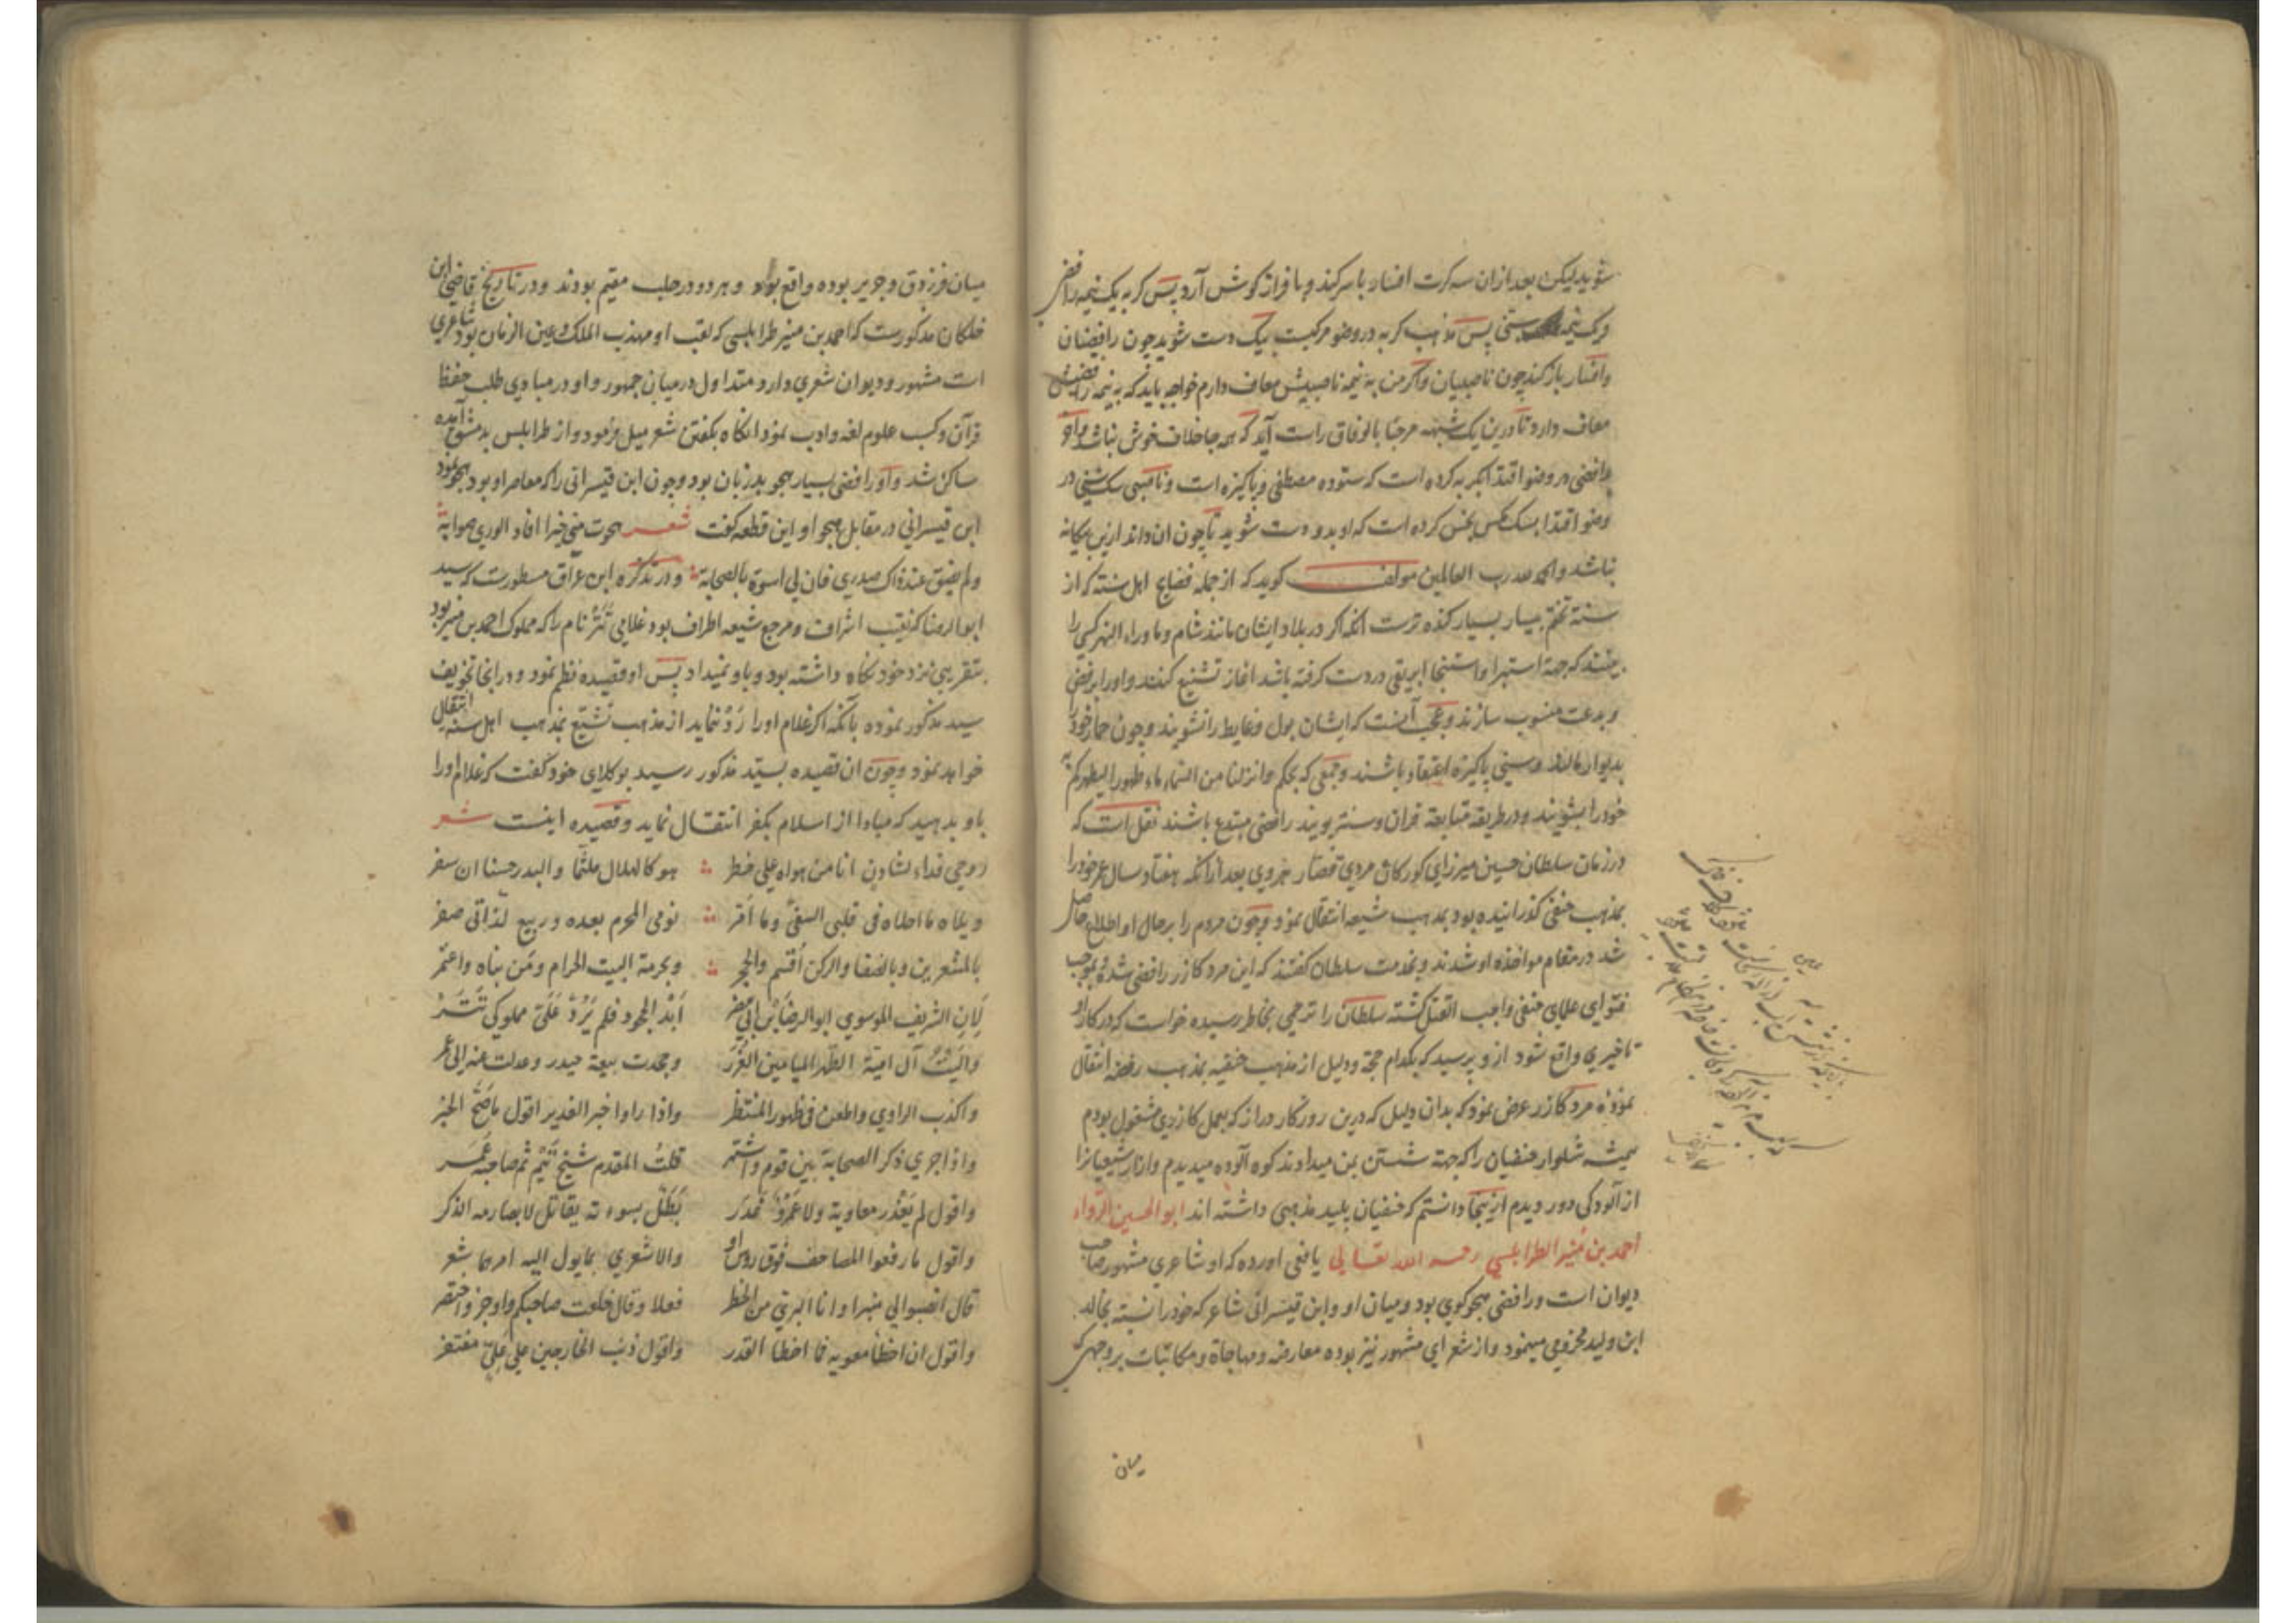 شوید لیکن بعد ازان سه کرت افشاند با سر کند و با فراز کوش آرد پس کربه یک نیمه رافضی
و یک نیمه سنی پس مذهب کربه در وضو مرکبست بیک دست شوید چون رافضیان
و افشار باز کند چون ناصبیان و اکر من به نیمه ناصبیش معاف دارم خواجه باید که به نیمه رافضیش
معاف دارد تا درین یک شبهه مرحبا بالوفاق راست آید که همه جا خلاف خوش نباشد و اکر
رافضی در وضو اقتدا بکربه کرده است که ستوده مصطفی و پاکیزه است و ناصبی سک شنی در
وضو اقتدا بسک نجس کرده است که او بدو دست شوید تا چون ان داند ازین بیکانه
نباشد والحمد لله رب العالمین مولف کوید که از جمله فضایح اهل سنه که از
سنة تختم بسیار بسیار کنده ترست انکه اکر در بلاد ایشان مانند شام و ماوراء النهر کسی را
بینند که جهة استبرا و استنجا ابریقی در دست کرفته باشد اغاز تشنیع کنند و اورا برفض
و بدعت منسوب سازند و عجب آنست که ایشان بول و غایط را نشویند و چون حمار خود را
بدیوار مالند و سنی پاکیزه اعتقاد باشند و جمعی که بحکم وانزلنا من السماء ماء طهورا لیطهرکم به
خود را بشویند و در طریقه متابعة قران و سنة پویند رافضی مبتدع باشند نقل است که
در زمان سلطان حسین میرزای کورکان مردی قصار هروی بعد ازانکه هفتاد سال عمر خود را
بمذهب حنفی کذرانیده بود بمذهب شیعه انتقال نمود و چون مردم را بر حال او اطلاع حاصل
شد در مقام مواخذه او شدند و بخدمت سلطان کفتند که این مرد کازر رافضی شده و بموجب
فتوای علمای حنفی واجب القتل کشته سلطان را ترحمی بخاطر رسیده خواست که در کار او
تاخیری واقع شود ازو پرسید که بکدام حجة و دلیل از مذهب حنفیه بمذهب رفضه انتقال
نموده مرد کازر عرض نمود که بدان دلیل که درین روزکار دراز که بعمل کازری مشغول بودم
همیشه شلوار حنفیان را که جهة شستن بمن میدادند کوه آلوده میدیدم و ازار شیعیانرا
از آلودکی دور دیدم ازینجا دانستم که حنفیان پلید مذهبی داشته اند ابو الحسین الرواء
احمد بن منیر الطرابلسی رحمه الله تعالی یافعی اورده که او شاعری مشهور صاحب
دیوان است و رافضی هجو کوی بود و میان او و ابن قیسرانی شاعر که خود را نسبة بخالد
ابن ولید مخزومی مینمود و از شعرای مشهور نیز بوده معارضه و مهاجاة و مکاتبات بر وجهی که
میان
میان فرزدق و جریر بوده واقع بود و هر دو در حلب مقیم بودند و در تاریخ قاضی ابن
خلکان مذکورست که احمد بن منیر طرابلسی که لقب او مهذب الملک و عین الزمان بود شاعری
است مشهور و دیوان شعری دارد متداول در میان جمهور و او در مبادی طلب حفظ
قرآن و کسب علوم لغه و ادب نمود انکاه بکفتن شعر میل فرمود و از طرابلس بدمشق آمده
ساکن شد و او رافضی بسیار هجو بد زبان بود و چون ابن قیسرانی را که معاصر او بود هجو نمود
ابن قیسرانی در مقابل هجو او این قطعه کفت شعر هجوت منی خیرا افاد الوری صوابه
ولم یضق عند ذاک صدری فان لی اسوة بالصحابة و در تذکره ابن عراق مسطورست که سید
ابو الرضا که نقیب اشراف و مرجع شیعه اطراف بود غلامی تتر نام را که مملوک احمد بن منیر بود
بتقریبی نزد خود نکاه داشته بود و باو نمیداد پس او قصیده نظم نمود و در انجا تخویف
سید مذکور نموده بآنکه اکر غلام اورا رد ننماید از مذهب تشیع بمذهب اهل سنه انتقال
خواهد نمود و چون ان قصیده بسید مذکور رسید بوکلای خود کفت که غلام اورا
باو بدهید که مبادا از اسلام بکفر انتقال نماید و قصیده اینست شعر
روحی فداء لشادن انا من هواه علی خطر هو کالهلال ملثما والبدر حسنا ان سفر
ویلاه ما احلاه فی قلبی الشقی وما امر نومی المحرم بعده وربیع لذاتی صفر
بالمشعرین وبالصفا والرکن اقسم والحجر وبحرمة البیت الحرام ومن بناه واعتمر
لان الشریف الموسوی ابو الرضا بن ابی مضر ابدی الجحود فلم یرد علی مملوکی تتر
والیت آل امیة الطهر المیامین الغرر وجحدت بیعة حیدر وعدلت عنه الی عمر
واکذب الراوی واطعن فی ظهور المنتظر واذا راوا خبر الغدیر اقول ما صح الخبر
واذا جری ذکر الصحابة بین قوم واشتهر قلت المقدم شیخ تیم ثم صاحبه عمر
واقول لم یغدر معاویة ولا عمرو غدر بطل بسوءته یقاتل لا بصارمه الذکر
واقول ما رفعوا المصاحف فوق روس او والاشعری بما یول الیه امرهما شعر
قال انصبوا لی منبرا وانا البری من الخطر فعلا وقال خلعت صاحبکم واوجز واختصر
واقول ان اخطا معویه فما اخطا القدر واقول ذنب الخارجین علی علی مغتفر